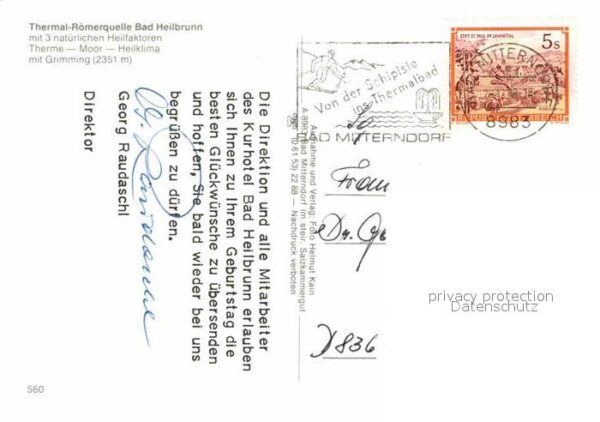 Thermal-Römerquelle Bad Heilbrunn
mit 3 natürlichen Heilfaktoren
Therme — Moor — Heilklima
mit Grimming (2351 m)
Die Direktion und alle Mitarbeiter
des Kurhotel Bad Heilbrunn erlauben
sich Ihnen zu Ihrem Geburtstag die
besten Glückwünsche zu übersenden
und hoffen, Sie bald wieder bei uns
begrüßen zu dürfen.
Georg Raudaschl
Direktor
Aufnahme und Verlag: Foto Helmut Kain
A-8983 Bad Mitterndorf im steir. Salzkammergut
(0 61 53) 22 88 — Nachdruck verboten
Von der Schipiste
ins Thermalbad
BAD MITTERNDORF
STIFT ST. PAUL IM LAVANTTAL
5s
REPUBLIK ÖSTERREICH
MITTERNDORF
8983
Frau
D-836
privacy protection
Datenschutz
560